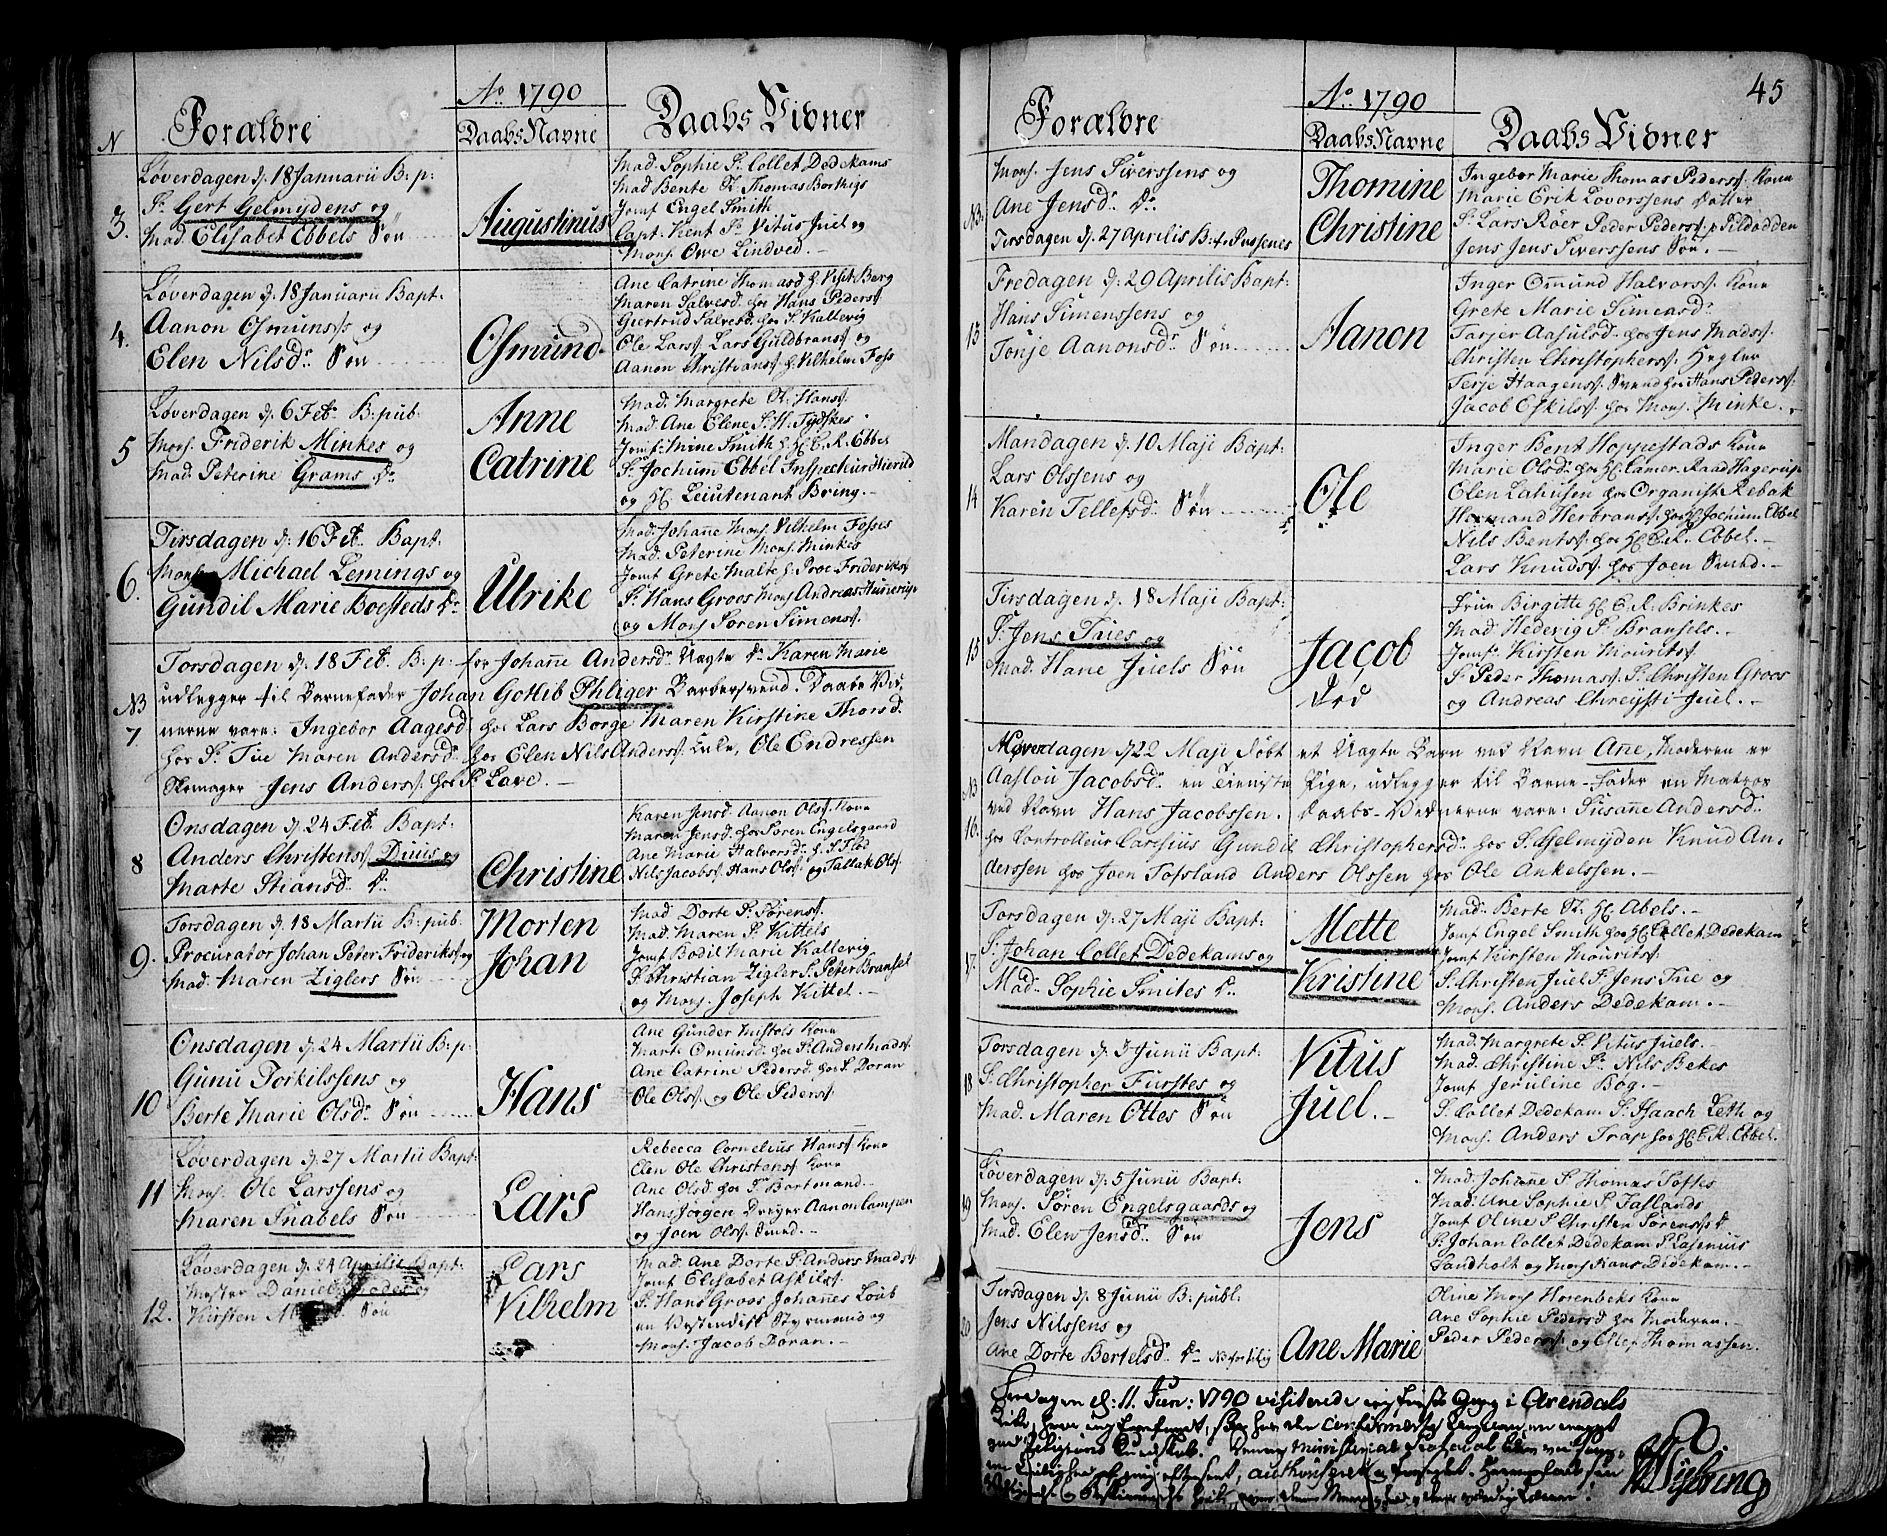 Ao. 1790
N Forældre Daabs Navne Daabs Vidner
Løverdagen d. 18 Januarii B: p:
3. Sr. Gert Gelmÿdens og
Mad. Elisabet Ebbels Søn
Augustinus
Mad. Sophie Sr. Collet Dedekams
Mad Bente Thomas
Jomf Engel Smith
Capt. Kent Sr. Vitus Juel og
Mons. Owe Lindved.
Løverdagen d. 18 Januarii Bapt:
4. Aanon Osmunss. og
Elen Nilsdr. Søn
Osmund
Ane Catrine Thomasd
Maren Salvesd. hos Hans Peders.
Giertrud Salvesd. hos Sr. Kallevig
Ole Lars. Lars Guldbrans. og
Aanon Christians. Vilhelm Foss
Løverdagen d. 6 Feb. B: pub:
5 Mons. Friderik Minkes og
Mad. Peterine Grams Dr.
Anne
Catrine
Mad. Margrete Hans.
Mad. Ane Elene
Jomf: Mine Smith E. R. Ebbel
Sr. Jochum Ebbel Inspecteur
og Leiutenant Bring.
Tirsdagen d: 16 Feb. Bapt:
6. Mons. Michael Lemings og
Gundil Marie Boesteds Dr.
Ulrike
Mad. Johanne Mons. Vilhelm Fosses
Mad. Peterine Mons. Minkes
Jomf Grete Malte Proc Frideriks
Sr. Hans Groos Mons. Andreas
og Mons. Søren Simons.
Torsdagen d. 18 Feb. B: p: for Johanne Andersdr. Uægte Dr. Karen Marie
NB udlegger til Barnefader Johan Gotlib Phliger Barbersvend. Daabs Vid
7 nerne vare: Ingebor Aagesd hos Lars Borge Maren Kirstine Thorsd.
hos Sr. Tue Maren Andersdr. hos Elen Nils Anders. Enke, Ole Endressen
Skomager Jens Anders. hos Sr. Lave.
Onsdagen d. 24 Feb. Bapt:
8 Anders Christens. Duus og
Marte Stiansd. Dr.
Christine
Karen Jensd Aanon Ols. Kone
Maren Jensd. hos Søren Engelsgaard
Ane Marie Halvorsd. hos
Nils Jacobs. Hans Ols. og Tallak Ols.
Torsdagen d. 18 Martii B: pub.
9. Procurator Johan Peter Frideriks. og
Mad: Maren Ziglers Søn
Morten
Johan
Mad. Dorte Sr. Sørens.
Mad. Maren Sr. Kittels
Jomf Bodil Marie Kallevig
Sr. Christian Zigler Sr. Peter Bransel
og Mons. Joseph Kittel.
Onsdagen d. 24 Martii B: p:
10 Gunu Torkilssens og
Berte Marie Olsd. Søn
Hans
Ane Gunder Kone
Marte Omunsd. hos Sr. Anders Mads.
Ane Catrine Pedersd. hos S. Doran
Ole Ols. og Ole Peders.
Løverdagen d. 27 Martii Bapt:
11 Mons. Ole Larssens og
Maren Snabels Søn
Lars
Rebecca Cornelius Hans. Kone
Elen Ole Christens. Kone
Ane Olsd hos Sr. Bartmand.
Hans Jørgen Dreyer Aanon Campen
og Joen Ols. Smed.
Løverdagen d. 24 Aprilii Bapt:
12. Mester Daniel og
Kirsten Søn
Lars
Vilhelm
Mad. Ane Dorte Sr. Anders Mads.
Jomf Elisabet Askils.
Sr. Hans Groos Johannes Loub
en Vestindisk Styrmand og
Mons. Jacob Doran.
45
Ao. 1790
Forældre Daabs Navne Daabs Vidner
Mons. Jens Siverssens og
NB. Ane Jensd. Dr.
Tirsdagen d. 27 Aprilis B:
Thomine
Christine
Ingebor Marie Thomas Peders. Kone
Marie Erik Lovorssens Datter
Sr. Lars Røer Peder Peders.
Jens Jens Siverssens Søn.
Fredagen d. 29 Aprilis Bapt:
13 Hans Simenssens og
Tonje Aanonsdr. Søn
Aanon
Inger Omund Halvors. Kone
Grete Marie Simensd.
Tarjer Aasulsd. hos Jens Mads.
Christen Christophers. Hegler
Terje Haagens. Svend hos Hans Peders.
Jacob Eskils. hos Mons. Minke.
Mandagen d. 10 Maji Bapt:
14 Lars Olssens og
Karen Tellefsd. Søn
Ole
Inger Bent Hoppestads Kone
Marie Olsd. hos Camer Raad Hagerup
Elen Lahusen hos Organist Rebak
Hermand Herbrans. hos Jochum Ebbel
Nils Bents. hos E. R. Ebbel.
Lars Knuds. hos Joen Smed.
Tirsdagen d. 18 Maji Bapt:
15 Sr. Jens Tues og
Mad. Hane Juels Søn
Jacob
Død
Frue Birgitte E. R. Brinkes
Mad. Hedevig Sr. Bransels.
Jomf. Kirsten Mourits.
Sr. Peder Thomas. Sr. Christen Groos
og Andreas Juel.
Løverdagen d. 22 Maji døbt et Uægte Barn ved Navn Ane, Moderen er
NB Aaslou Jacobsd. en Tieniste Pige, udlegger til Barne-fader en Matros
ved Navn Hans Jacobssen. Daabs-Vidnerne vare: Susanne Andersd.
16. hos Controlleur Carssius Gundil Christophersd. hos S. Gelmÿden Knud An,
derssen hos Joen Tofsland Anders Olssen hos Ole Ankelssen.
Torsdagen d. 27 Maji Bapt:
17. Sr. Johan Collet Dedekams og
Mad. Sophie Smites Dr.
Mette
Kristine
Mad: Berte Abels.
Jomf Engel Smith hos Collet Dedekam
Jomf Kirsten Mourits.
Sr. Christen Juel Sr. Jens Tue og
Mons. Anders Dedekam.
Torsdagen d. 3 Junii Bapt:
18 Sr. Christopher Furstes og
Mad. Maren Ottes Søn
Vitus
Juel.
Mad. Margrete Sr. Vitus Juels.
Mad. Christine Sr. Nils Bekes
Jomf Jeruline Bog.
Sr. Collet Dedekam Sr. Isaach Leth og
Mons. Anders Trap hos E. R. Ebbel.
Løverdagen d. 5 Junii Bapt:
19 Mons. Søren Engelsgaards og
Mad. Elen Jensd. Søn
Jens
Mad. Johanne Sr. Thomas Tofte
Mad. Ane Sophie Sr. Taslands
Jomf Oline Sr. Christen Sørens. D
Sr. Johan Collet Dedekam Sr. Casenius
Sandholt og Mons. Hans Dedekam.
Tirsdagen d. 8 Junii B: publ.
20 Jens Nilssens og
Ane Dorte Bertelsd. Dr.
Ane Marie
Oline Mons. Horenbeks Kone
Ane Sophie Pedersd hos Moderen.
Peder Peders. og Ellef Thomassen.
d. 11 Jun: 1790 visiterede jeg første Gang i Arendals